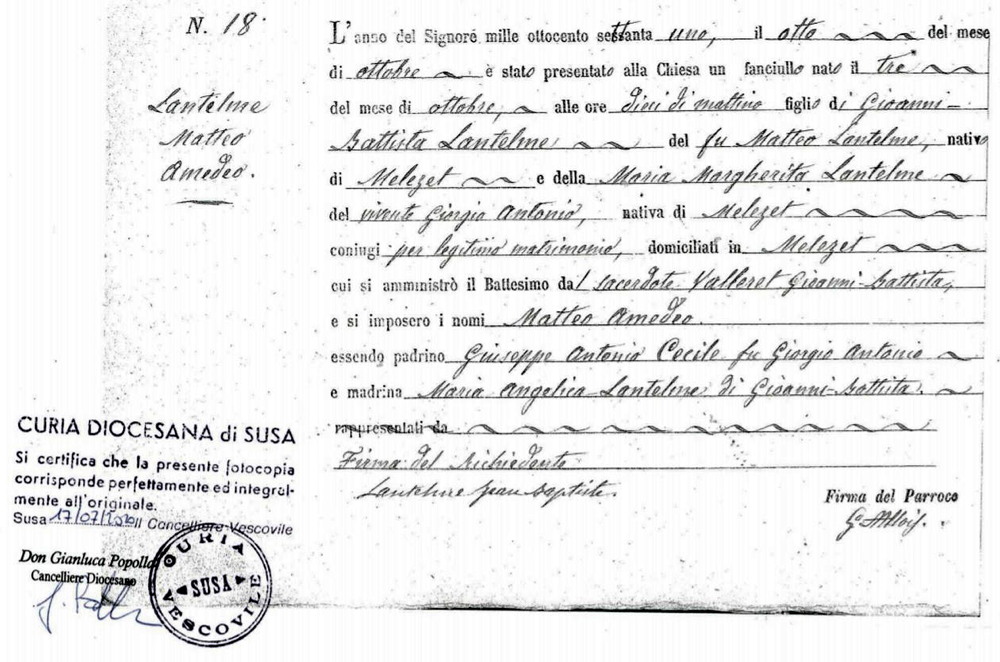 N. 18
Lantelme
Matteo
Amedeo.
L'anno del Signore mille ottocento settanta uno, il otto del mese
di ottobre è stato presentato alla Chiesa un fanciullo nato il tre
del mese di ottobre, alle ore dieci di mattino figlio di Gioanni-
Battista Lantelme del fu Matteo Lantelme, nativo
di Melezet e della Maria Margherita Lantelme
del vivente Giorgio Antonio, nativa di Melezet
coniugi per legitimo matrimonio, domiciliati in Melezet
cui si amministrò il Battesimo dal sacerdote Valleret Gioanni-Battista,
e si imposero i nomi Matteo Amedeo.
essendo padrino Giuseppe Antonio Cecile fu Giorgio Antonio
e madrina Maria Angelica Lantelme di Gioanni-Battista.
rappresentati da
Firma del Richiedente
Lantelme Jean Baptiste.
Firma del Parroco
CURIA DIOCESANA di SUSA
Si certifica che la presente fotocopia
corrisponde perfettamente ed integral-
mente all'originale.
Susa 17/07/2020 Il Cancelliere Vescovile
Don Gianluca Popolla
Cancelliere Diocesano
CURIA VESCOVILE
SUSA